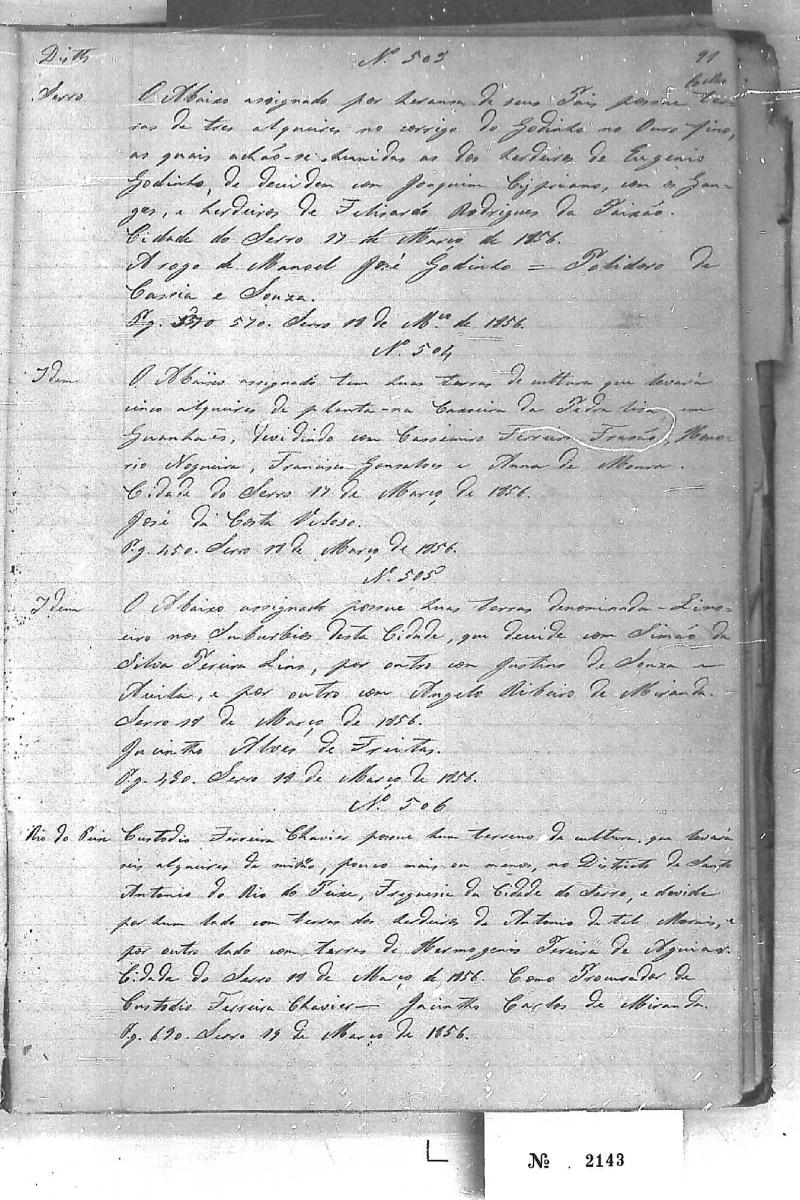 Distº Nº 503 91
Coelho
Serro O Abaixo assignado por heransa de seus Pais possue ter-
ras de tres alqueires no corrigo do Godinho no Ouro-fino,
as quais achão-se hunidas as dos herdeiros de Eugenio
Godinho, de devidem com Joaquim Cypriano, com os Gan-
gas, e herdeiros de Felisardo Rodrigues da Paixão.
Cidade do Serro 17 de Março de 1856.
A rogo de Manoel José Godinho = Polidoro de
Cassia e Souza.
Pg. 570. Serro 18 de Mço de 1856.
Nº 504
Idem O Abaixo assignado tem huas terras de cultura que levará
cinco alqueires de planta na Caxoeira da Pedra lisa, em
Guanhães, devidindo com Cassimiro Ferreira Frasão, Hono-
rio Nogueira, Francisco Gonsalves e Anna de Moura.
Cidade do Serro 17 de Março de 1856.
José da Costa Veloso.
Pg. 450. Serro 18 de Março de 1856.
Nº 505
Idem O Abaixo assignado possue huas terras denominada - Limo-
eiro nos Suburbios desta Cidade, que devide com Simão da
Silva Pereira Lins, por outro com Justino de Souza e
Avila, e por outro com Angelo Ribeiro de Miranda.
Serro 18 de Março de 1856.
Jacintho Alves de Freitas.
Pg. 490. Serro 18 de Março de 1856.
Nº 506
Rio do Peixe Custodio Ferreira Chavier possue hum terreno de cultura, que levará
seis alqueires de milho, pouco mais ou menos, no Districto de Santo
Antonio do Rio do Peixe, Freguesia da Cidade do Serro, e devide
por hum lado com terras dos herdeiros de Antonio de tal Morais, e
por outro lado com terras de Hermogenis Pereira de Aguiar.
Cidade do Serro 18 de Março de 1856. Como Procurador de
Custodio Ferreira Chavier - Jacintho Carlos de Miranda.
Pg. 690. Serro 19 de Março de 1856.
Nº 2143